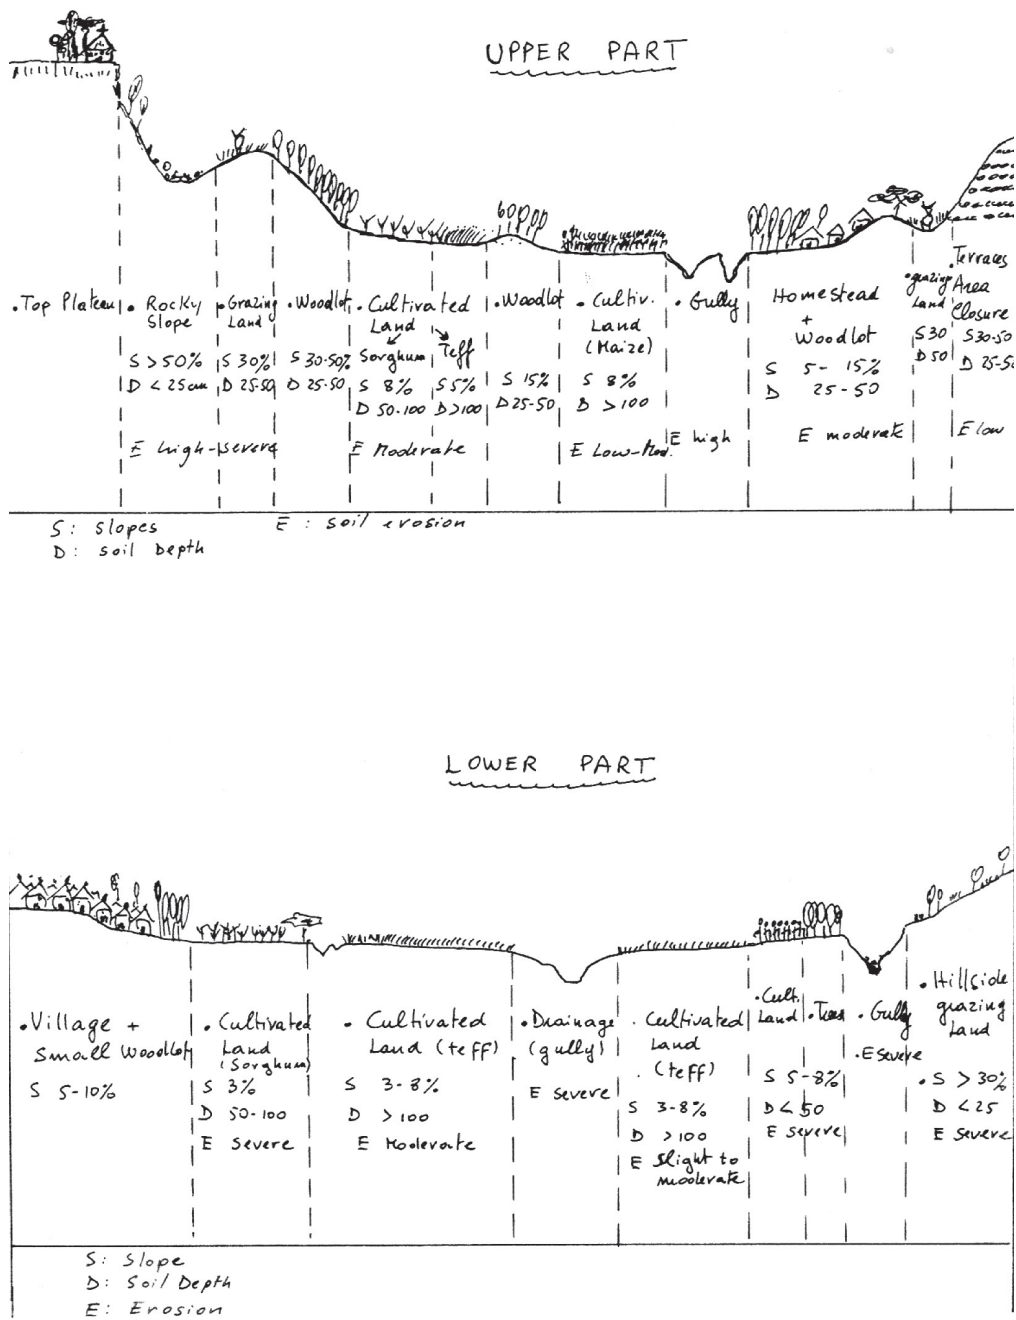 UPPER PART
• Top Plateau
• Rocky
Slope
S > 50%
D < 25cm
E high-severe
• Grazing
Land
S 30%
D 25-50
• Woodlot
S 30-50%
D 25-50
• Cultivated
Land
Sorghum
S 8%
D 50-100
Teff
S 5%
D >100
E Moderate
• Woodlot
S 15%
D 25-50
• Cultiv.
Land
(Maize)
S 8%
D > 100
E Low-Mod.
• Gully
E high
Homestead
+
Woodlot
S 5 - 15%
D 25-50
E moderate
• grazing
Land
S 30
D 50
• Terraces
Area
Closure
S 30-50
D 25-50
E low
S: Slopes
E : Soil erosion
D: Soil Depth
LOWER PART
• Village +
Small Woodlot
S 5-10%
• Cultivated
Land
(Sorghum)
S 3%
D 50-100
E Severe
• Cultivated
Land (teff)
S 3-8%
D >100
E Moderate
• Drainage
(gully)
E severe
• Cultivated
Land
(teff)
S 3-8%
D >100
E Slight to
moderate
• Cult.
Land
• Trees
S 5-8%
D < 50
E severe
• Gully
• E severe
• Hillside
grazing
Land
• S > 30%
D < 25
E Severe
S: Slope
D: Soil Depth
E: Erosion